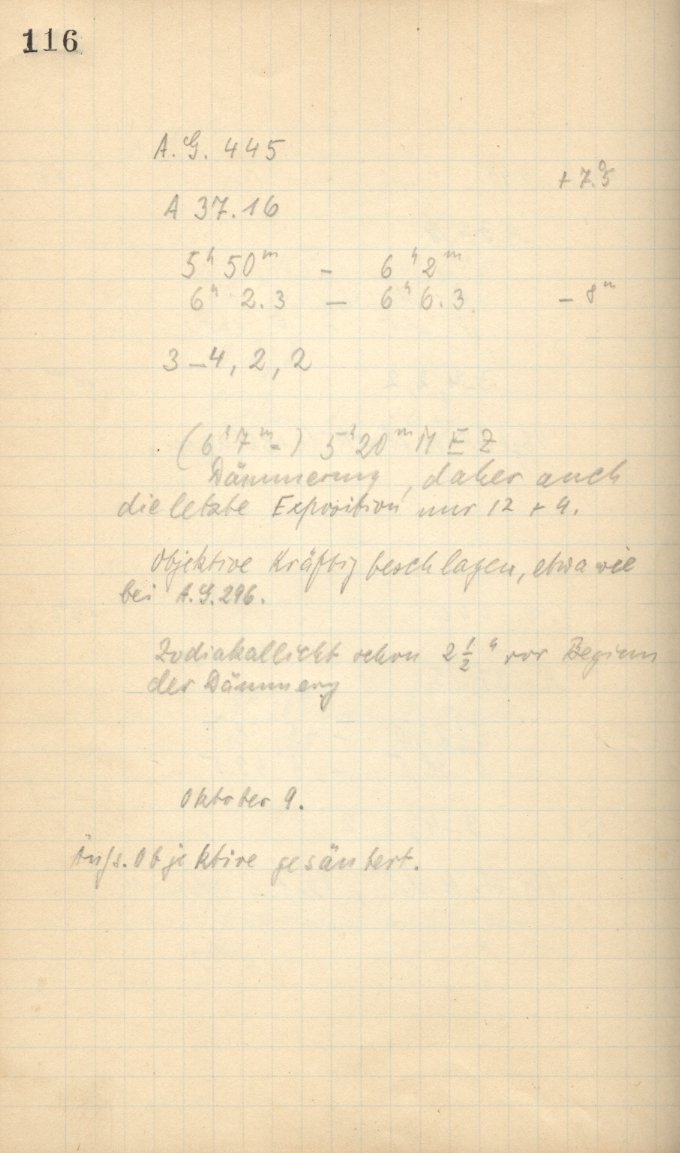 116
A.G. 445
+7.°5
A 37.16
5ʰ 50ᵐ - 6ʰ 2ᵐ
6ʰ 2.3 — 6ʰ 6.3 - 8ᵐ
3-4, 2, 2
(6ʰ 7ᵐ-) 5ʰ 20ᵐ M E Z
Dämmerung, daher auch
die letzte Exposition nur 12 + 4.
Objektive kräftig beschlagen, etwa wie
bei A.G. 296.
Zodiakallicht schon 2 ½ ʰ vor Beginn
der Dämmerg
Oktober 9.
Äuss. Objektive gesäubert.